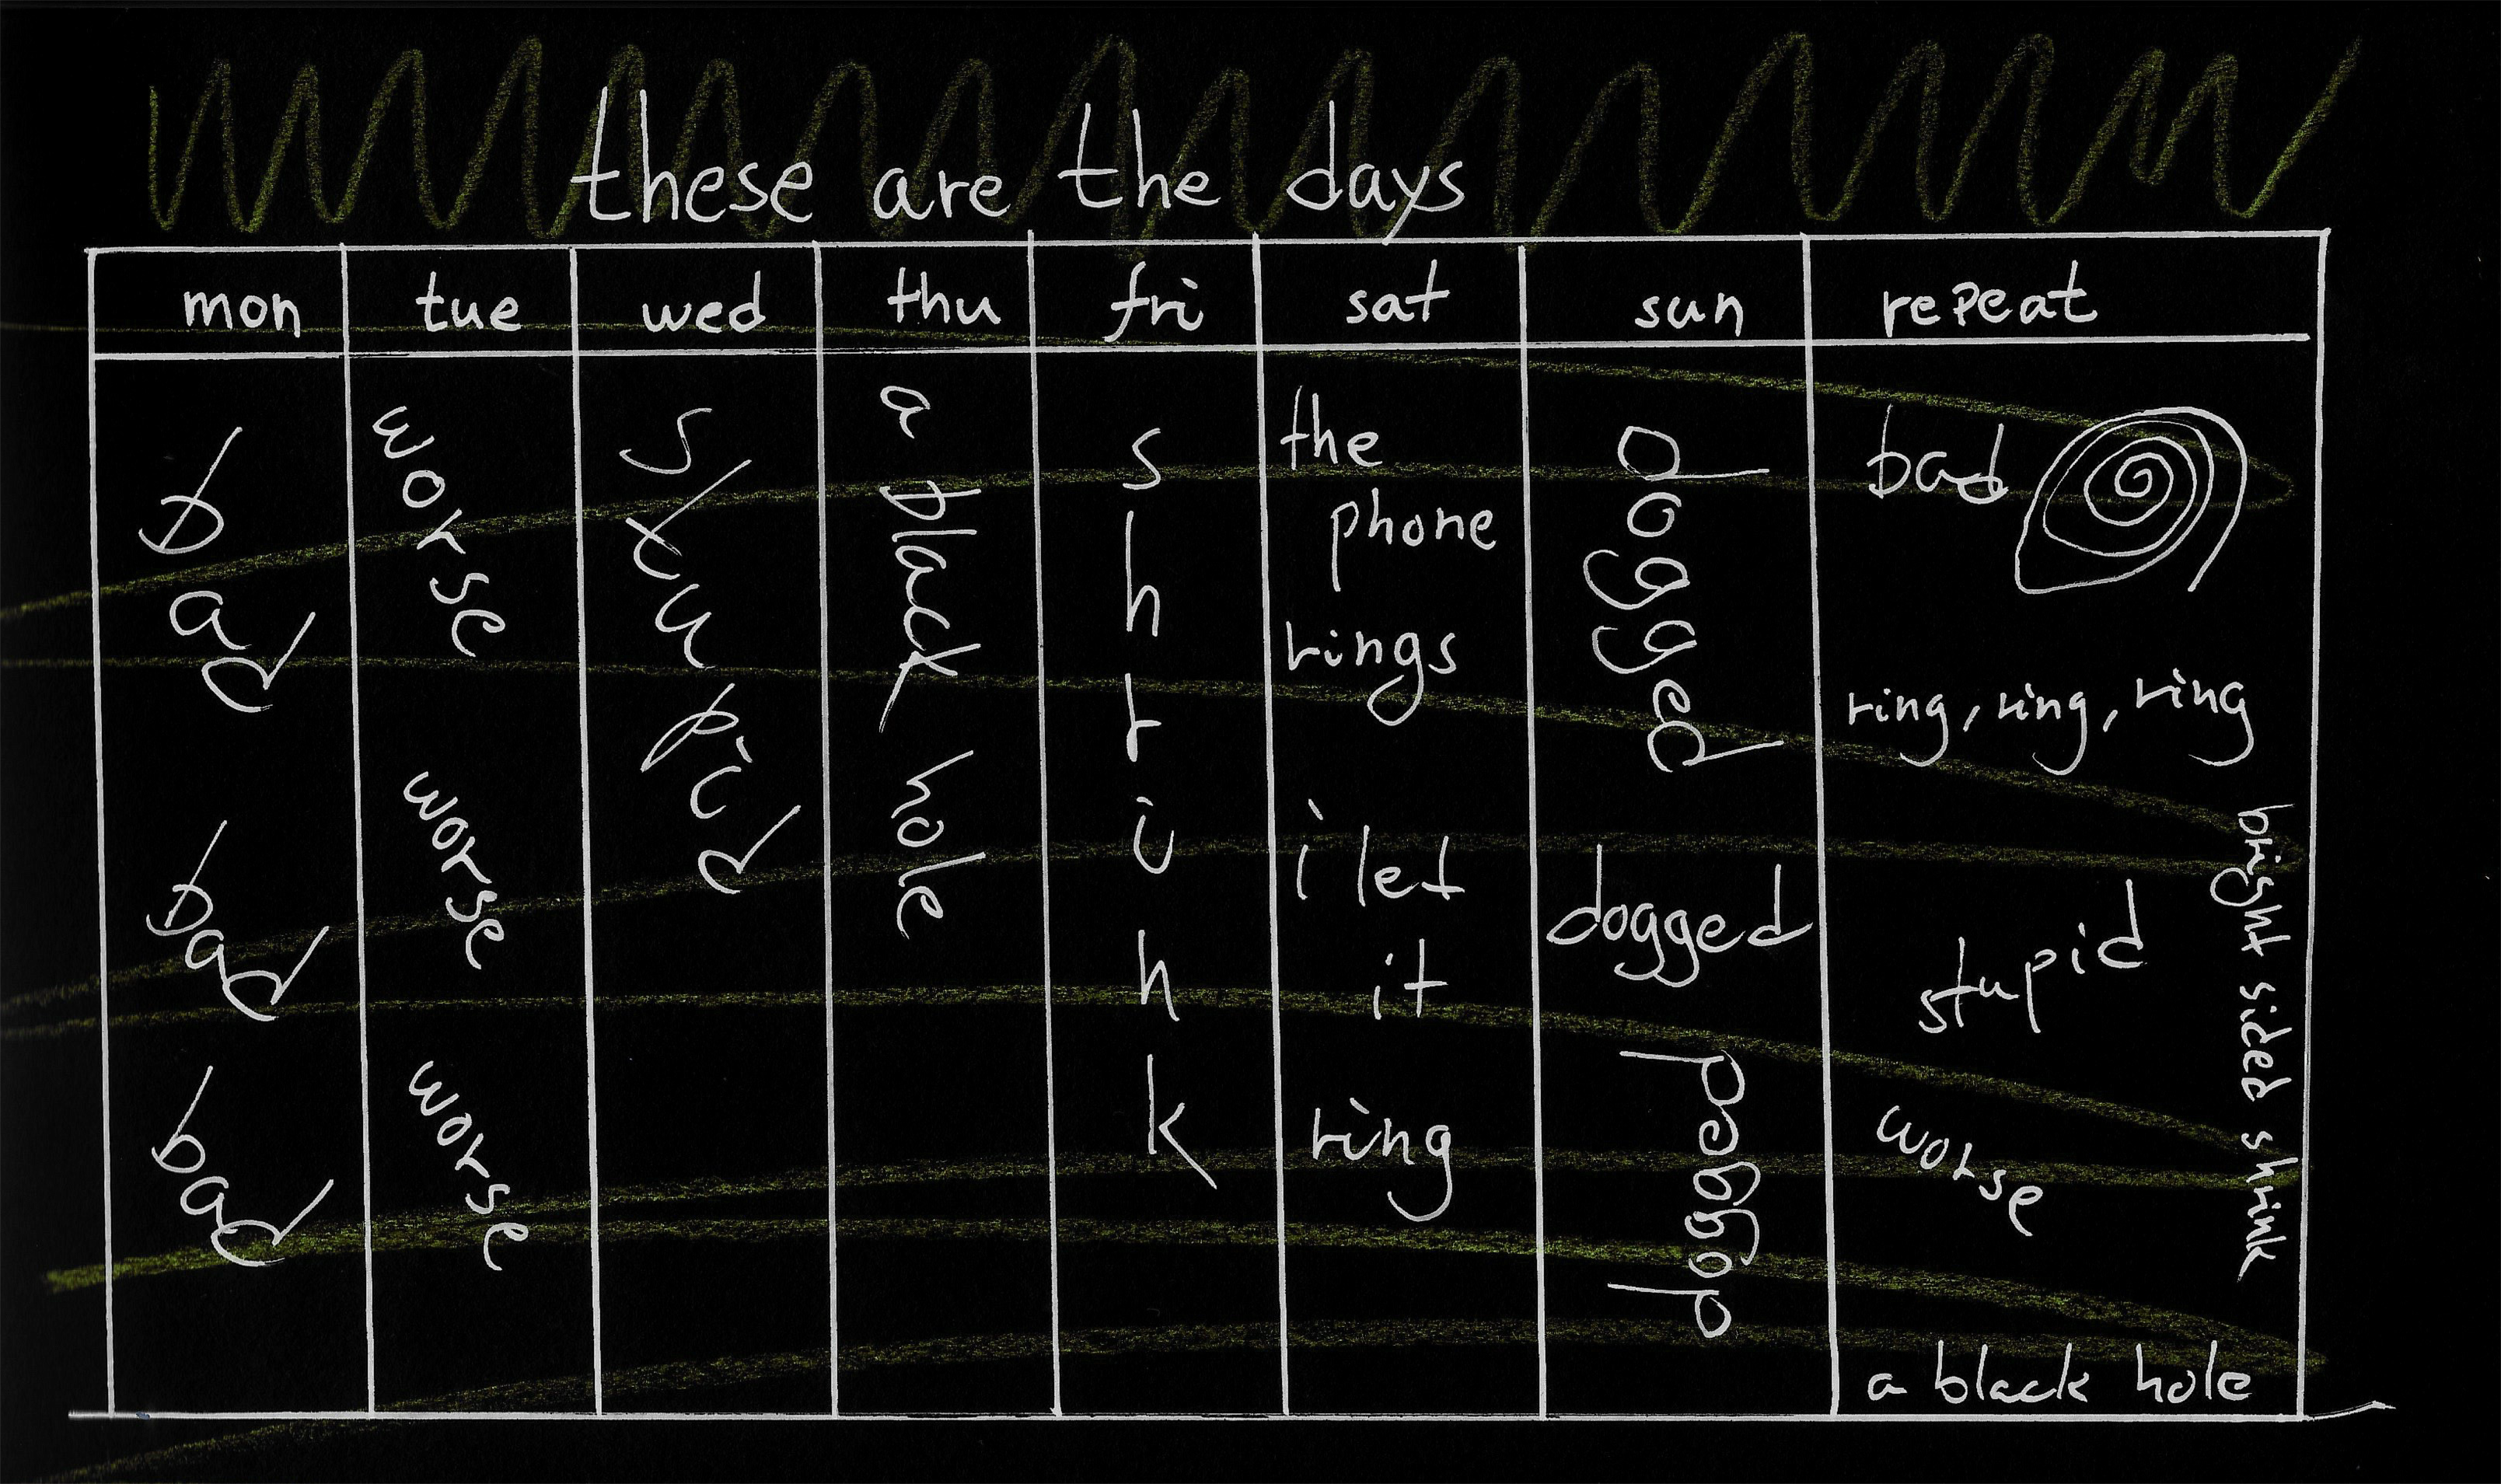 these are the days
mon tue wed thu fri sat sun repeat
bad
bad
bad
worse
worse
worse
stupid
a black hole
shrink
the
phone
rings
i let
it
ring
dogged
dogged
dogged
bad
ring, ring, ring
stupid
worse
a black hole
bright sided shrink